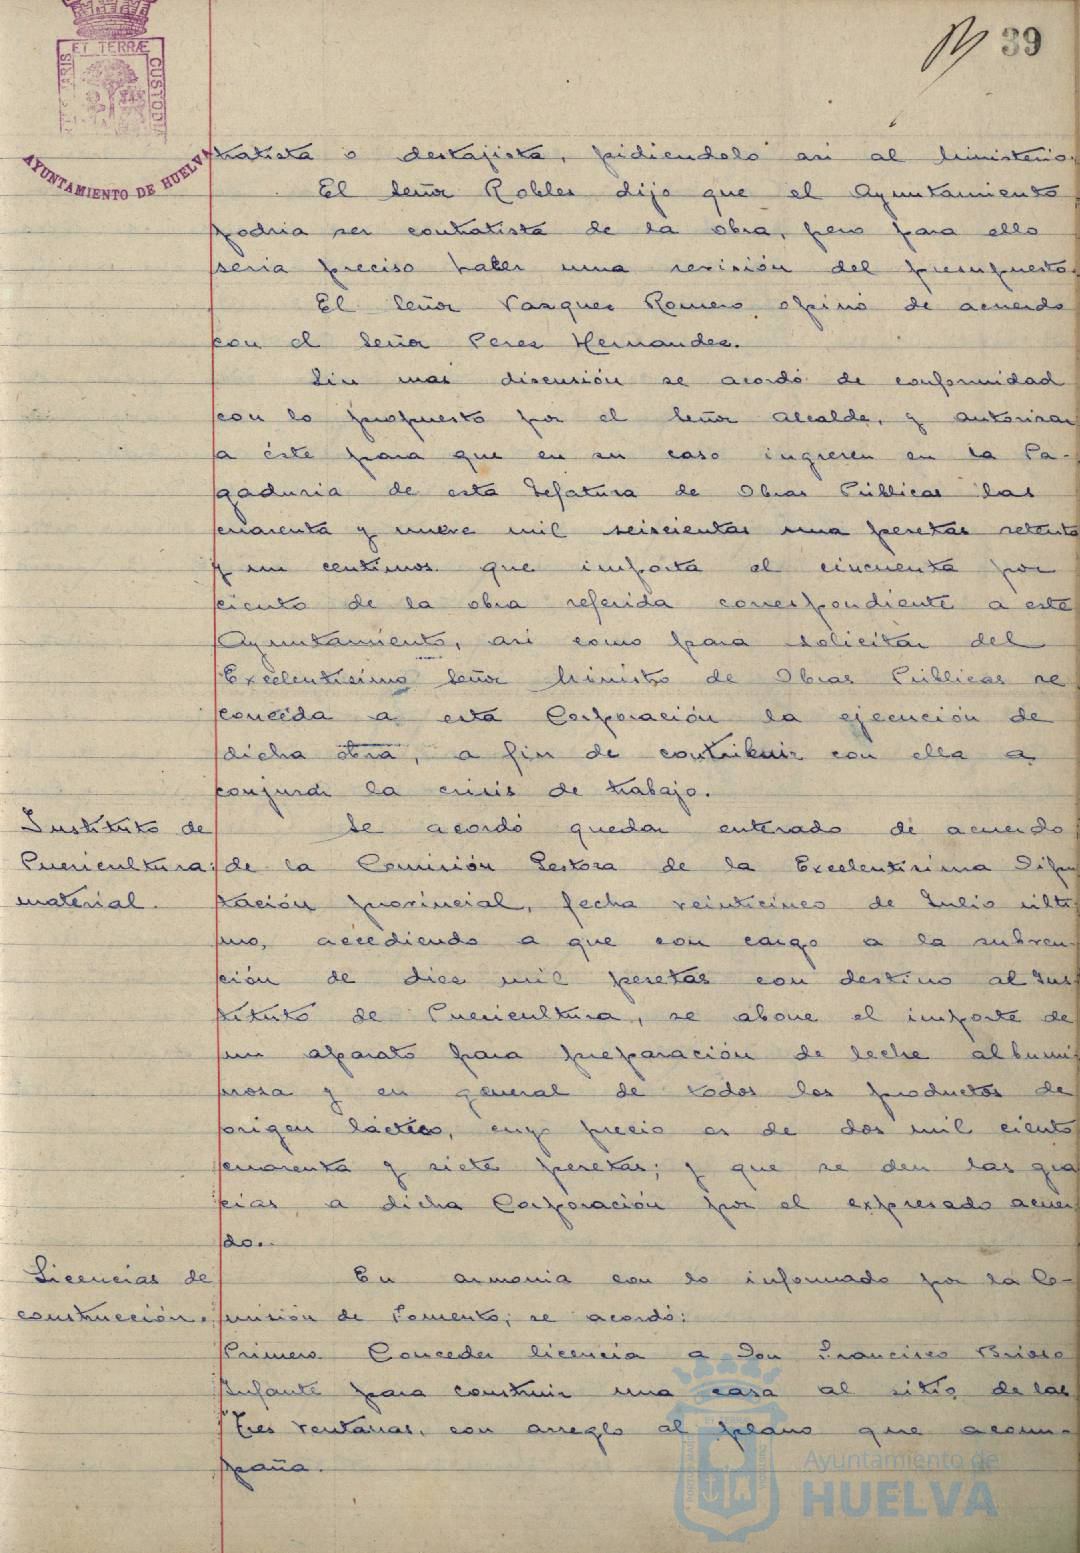 39
ET TERRÆ
CUSTODIA
AYUNTAMIENTO DE HUELVA
tratista o destajista, pidiendolo asi al Ministerio.
El Señor Robles dijo que el Ayuntamiento
podria ser contratista de la obra, pero para ello
seria preciso haber una revisión del presupuesto.
El Señor Vazquez Romero opinó de acuerdo
con el Señor Perez Hernandez.
Sin mas discusión se acordó de conformidad
con lo propuesto por el Señor Alcalde, y autorizar
a éste para que en su caso ingresen en la Pa-
gaduria de esta Jefatura de Obras Públicas las
cuarenta y nueve mil seiscientas una pesetas setenta
y un centimos que importa el cincuenta por
ciento de la obra referida correspondiente a este
Ayuntamiento, asi como para solicitar del
Excelentisimo Señor Ministro de Obras Públicas se
conceda a esta Corporación la ejecución de
dicha obra, a fin de contribuir con ella a
conjurar la crisis de trabajo.
Instituto de
Puericultura:
material.
Se acordó quedar enterado de acuerdo
de la Comisión Gestora de la Excelentisima Dipu
tación provincial, fecha veinticinco de Julio ulti
mo, accediendo a que con cargo a la subven-
ción de diez mil pesetas con destino al Ins
tituto de Puericultura, se abone el importe de
un aparato para preparación de leche albumi
nosa y en general de todos los productos de
origen lácteo, cuyo precio es de dos mil ciento
cuarenta y siete pesetas; y que se den las gra
cias a dicha Corporación por el expresado acuer
do.
Licencias de
construcción.
En armonia con lo informado por la Co-
misión de Fomento, se acordó:
Primero Conceder licencia a Don Francisco Brioso
Infante para construir una casa al sitio de las
Tres ventanas, con arreglo al plano que acom-
paña.
Ayuntamiento de
HUELVA